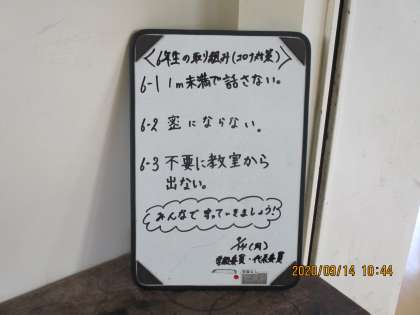 <6年生の取り組み(コロナ対策)>
6-1 1m未満で話さない。
6-2 密にならない。
6-3 不要に教室から
出ない。
みんなで守っていきましょう!
(月)
学級委員・代表委員
2020/09/14 10:44